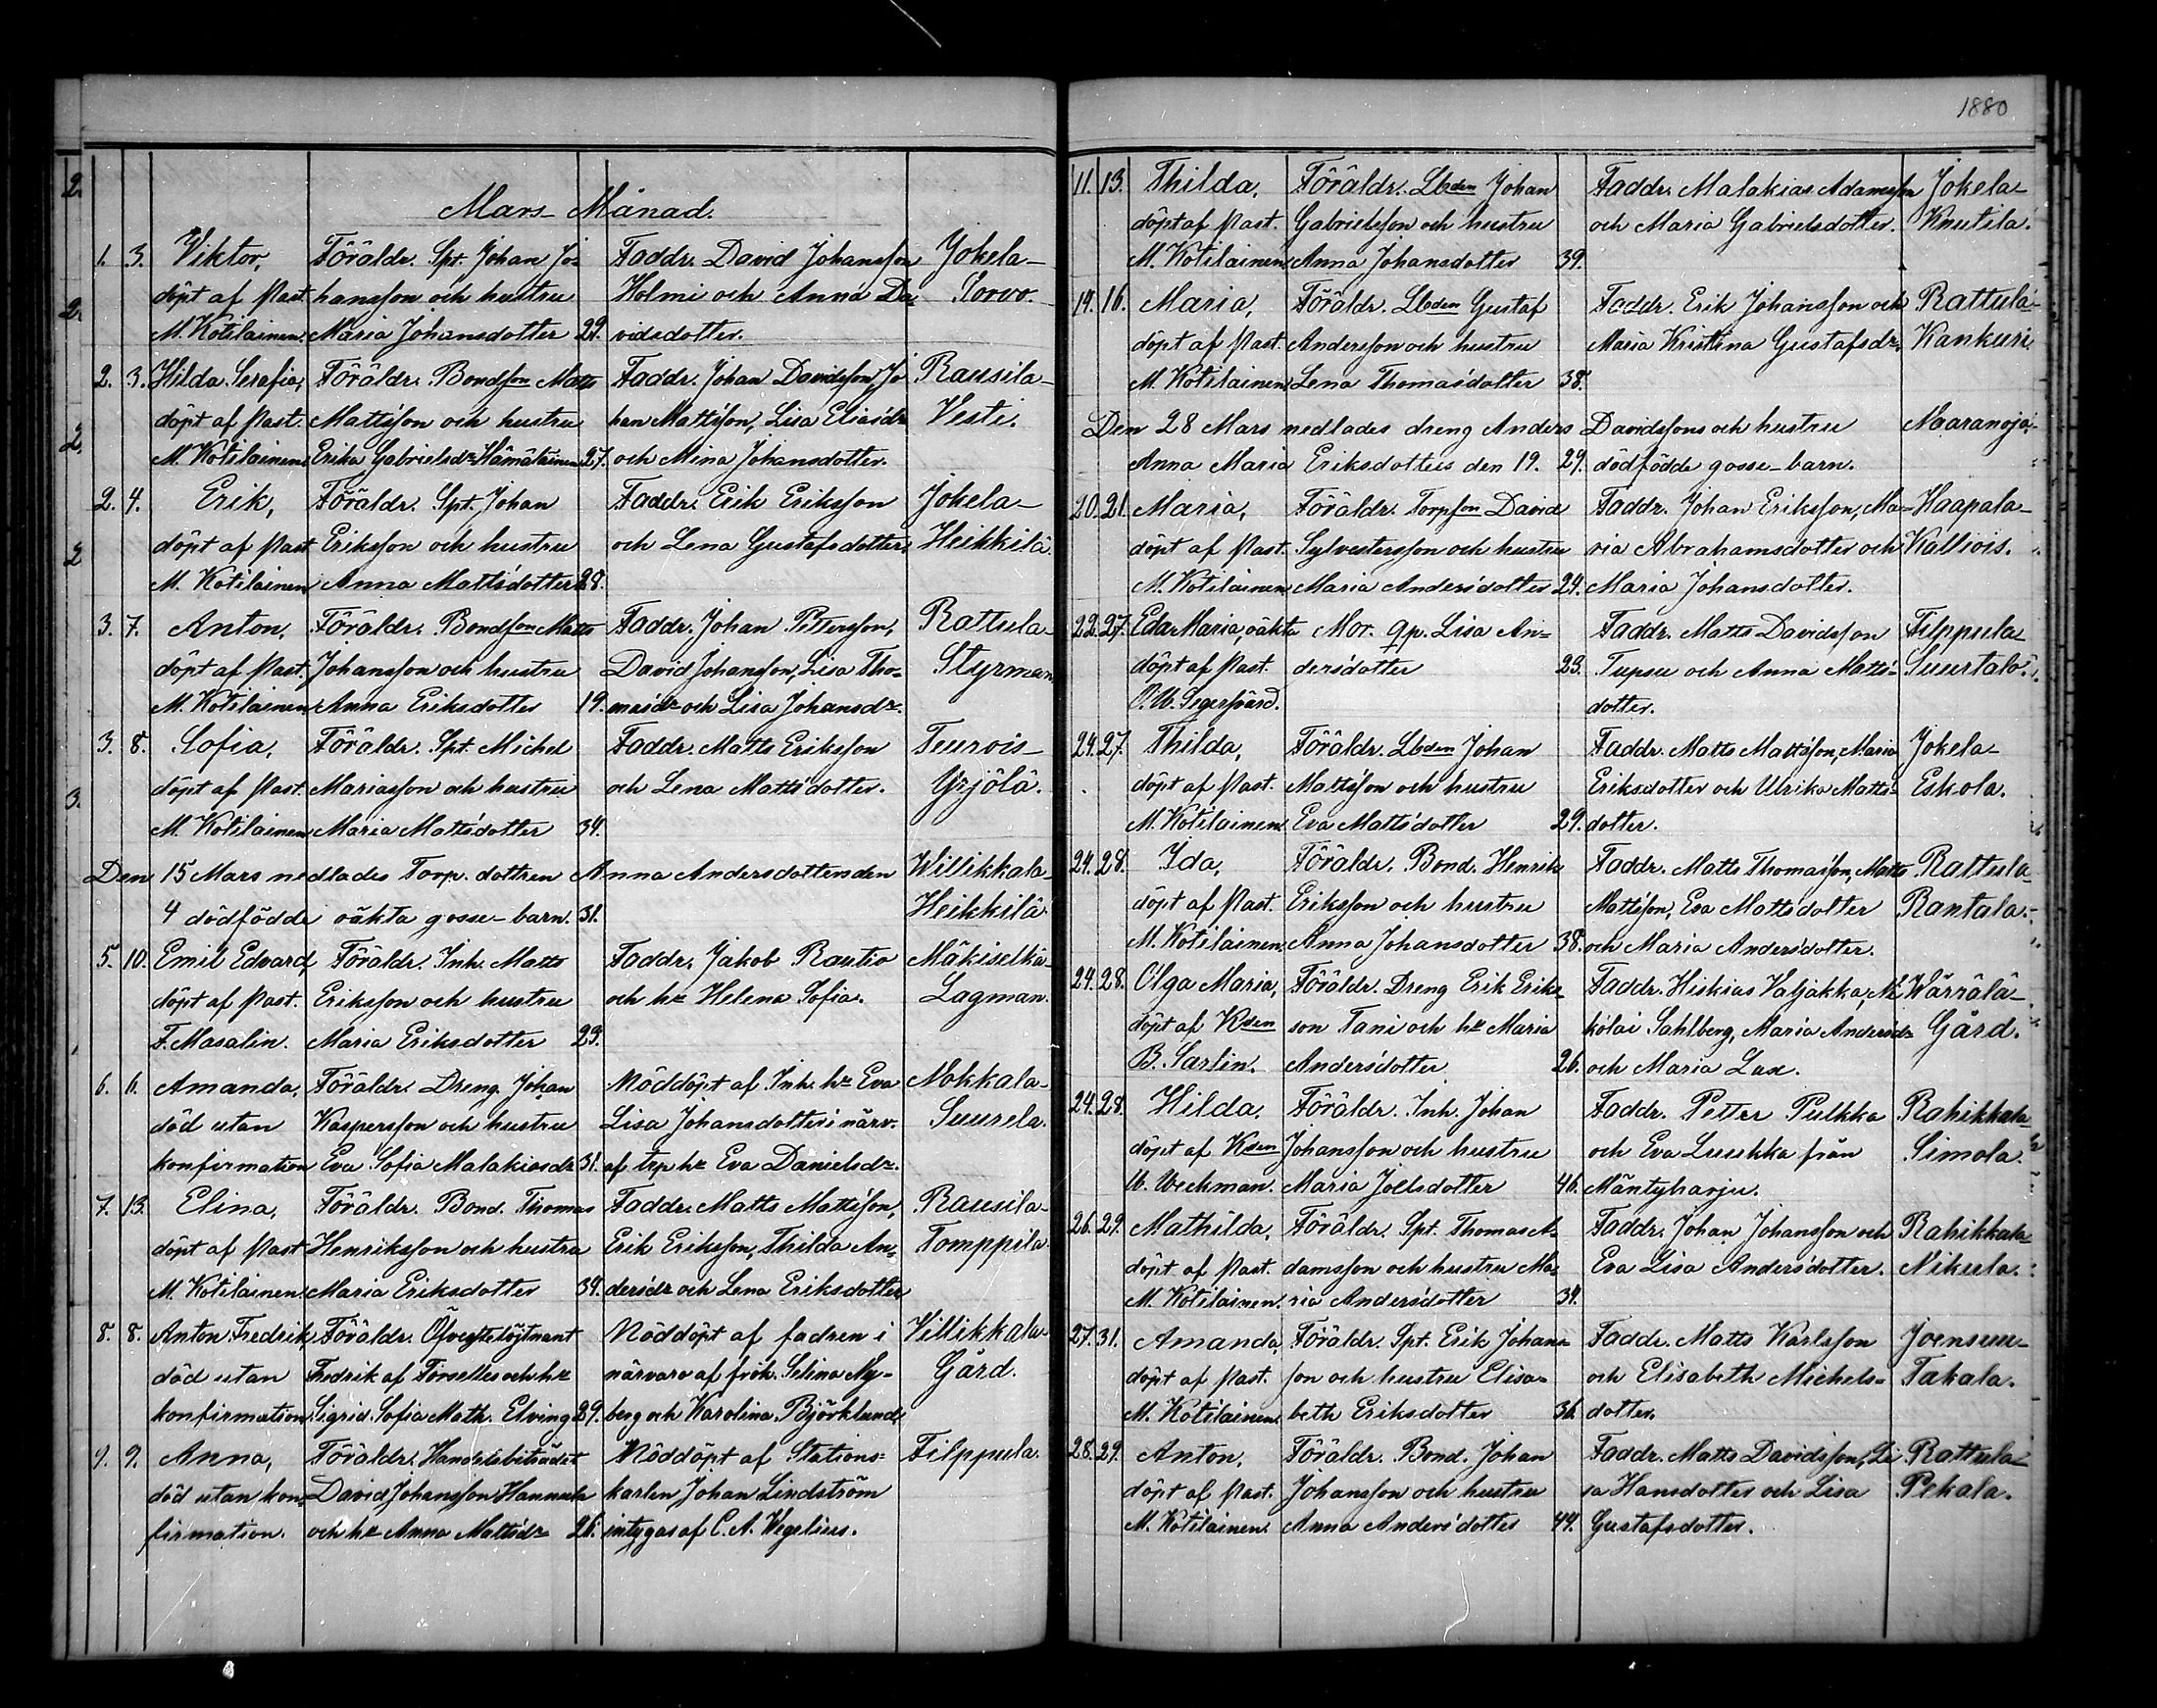 1880
Mars Månad.
1. 3. Viktor, Föräldr. Spt. Johan Jo- Faddr. David Johansson Jokela-
döpt af Past. hansson och hustru Holmi och Anna Da- Torvo.
M. Kotilainen. Maria Johansdotter 29. vidsdotter.
2. 3. Hilda Serafia, Föräldr. Bondson Matts Faddr. Johan Davidsson, Jo Rausila-
döpt af Past. Mattsson och hustru han Mattsson, Lisa Eliasdr Vesti.
M. Kotilainen. Erika Gabrielsdr Hämäläinen 27. och Mina Johansdotter.
2. 4. Erik, Föräldr. Spt. Johan Faddr. Erik Eriksson Jokela-
döpt af Past Eriksson och hustru och Lena Gustafsdotter. Heikkilä.
M. Kotilainen Anna Mattsdotter 28.
3. 7. Anton, Föräldr. Bondson Matts Faddr. Johan Pettersson, Rattula-
döpt af Past. Johansson och hustru David Johansson, Lisa Tho- Styrman
M. Kotilainen. Anna Eriksdotter 19. masdr och Lisa Johansdr.
3. 8. Sofia, Föräldr. Spt. Michel Faddr. Matts Eriksson Teurois-
döpt af Past. Mariasson och hustru och Lena Mattsdotter. Yrjölä.
M. Kotilainen Maria Mattsdotter 34.
Den 15 Mars nedlades Torp. dottren Anna Andersdotters den Willikkala-
4 dödfödde oäkta gosse-barn. 31. Heikkilä.
5. 10. Emil Edvard, Föräldr. Inh. Matts Faddr. Jakob Rautio Mäkiselkä-
döpt af Past. Eriksson och hustru och hr Helena Sofia. Lagman.
F. Masalin. Maria Eriksdotter 23.
6. 6. Amanda, Föräldr. Dreng. Johan Nöddöpt af Inh. hr Eva Nokkala-
död utan Kaspersson och hustru Lisa Johansdotter i närv. Suurela.
konfirmation Eva Sofia Malakiasdr 31. af trp hr Eva Danielsdr.
7. 13. Elina, Föräldr. Bond. Thomas Faddr. Matts Mattsson, Rausila-
döpt af Past Henriksson och hustru Erik Eriksson, Thilda An- Tomppila
M. Kotilainen Maria Eriksdotter 34. dersdr och Lena Eriksdotter
8. 8. Anton Fredrik Föräldr. Öfverstelöjtnant Nöddöpt af fadren i Villikkala-
död utan Fredrik af Forselles och hr närvaro af frök. Selina Ny- Gård.
konfirmation. Sigrid Sofia Math. Elving 29. berg och Karolina Björklund.
9. 9. Anna, Föräldr. Handelsbiträdet Nöddöpt af Stations- Filppula.
död utan kon- David Johansson Hannula karlen Johan Lindström
firmation. och hr Anna Mattsdr 26. intygas af C. A. Wegelius.
11. 13. Thilda, Föräldr. Lbden Johan Faddr. Malakias Adamsson Jokela-
döpt af Past. Gabrielsson och hustru och Maria Gabrielsdotter. Knutila.
M. Kotilainen. Anna Johansdotter 39.
14. 16. Maria, Föräldr. Lbden Gustaf Faddr. Erik Johansson och Rattula-
döpt af Past. Andersson och hustru Maria Kristina Gustafsdr. Kankuri.
M. Kotilainen Lena Thomasdotter 38.
Den 28 Mars nedlades dreng Anders Davidssons och hustru Naaranoja-
Anna Maria Eriksdotters den 19. 29. dödfödde gosse-barn.
20. 21. Maria, Föräldr. Torpson David Faddr. Johan Eriksson, Ma- Haapala-
döpt af Past. Sylvestersson och hustru ria Abrahamsdotter och Kalliois.
M. Kotilainen Maria Andersdotter 24. Maria Johansdotter.
22. 27. Eda Maria, oäkta Mor. qp. Lisa An- Faddr. Matts Davidsson Filppula-
döpt af Past. dersdotter 23. Tupsu och Anna Matts- Suurtalo.
O. W. Segersvärd. dotter.
24. 27. Thilda, Föräldr. Lbden Johan Faddr. Matts Mattsson, Maria Jokela-
döpt af Past. Mattsson och hustru Eriksdotter och Ulrika Matts- Eskola.
M. Kotilainen. Eva Mattsdotter 29. dotter.
24. 28. Ida, Föräldr. Bond. Henrik Faddr. Matts Thomasson, Matts Rattula-
döpt af Past. Eriksson och hustru Mattsson, Eva Mattsdotter Rantala.
M. Kotilainen. Anna Johansdotter 38. och Maria Andersdotter.
24. 28. Olga Maria, Föräldr. Dreng Erik Eriks- Faddr. Hiskias Valjakka, Ni Wärrälä-
döpt af Kden son Tani och hr Maria kolai Sahlberg, Maria Andersdr Gård.
B. Sarlin. Andersdotter 26. och Maria Lax.
24. 28. Hilda, Föräldr. Inh. Johan Faddr. Petter Pulkka Rahikkala-
döpt af Kden Johansson och hustru och Eva Luukka från Simola.
W. Weckman. Maria Joelsdotter 46. Mäntyharju.
26. 29. Mathilda, Föräldr. Spt. Thomas A- Faddr. Johan Johansson och Rahikkala-
döpt af Past. damsson och hustru Ma- Eva Lisa Andersdotter. Nikula.
M. Kotilainen. ria Andersdotter 34.
27. 31. Amanda, Föräldr. Spt. Erik Johans- Faddr. Matts Karlsson Joensuu-
döpt af Past. son och hustru Elisa- och Elisabeth Michels- Takala.
M. Kotilainen. beth Eriksdotter 36. dotter.
28. 29. Anton, Föräldr. Bond. Johan Faddr. Matts Davidsson, Li Rattula-
döpt af Past. Johansson och hustru sa Hansdotter och Lisa Pekala.
M. Kotilainen. Anna Andersdotter 44. Gustafsdotter.